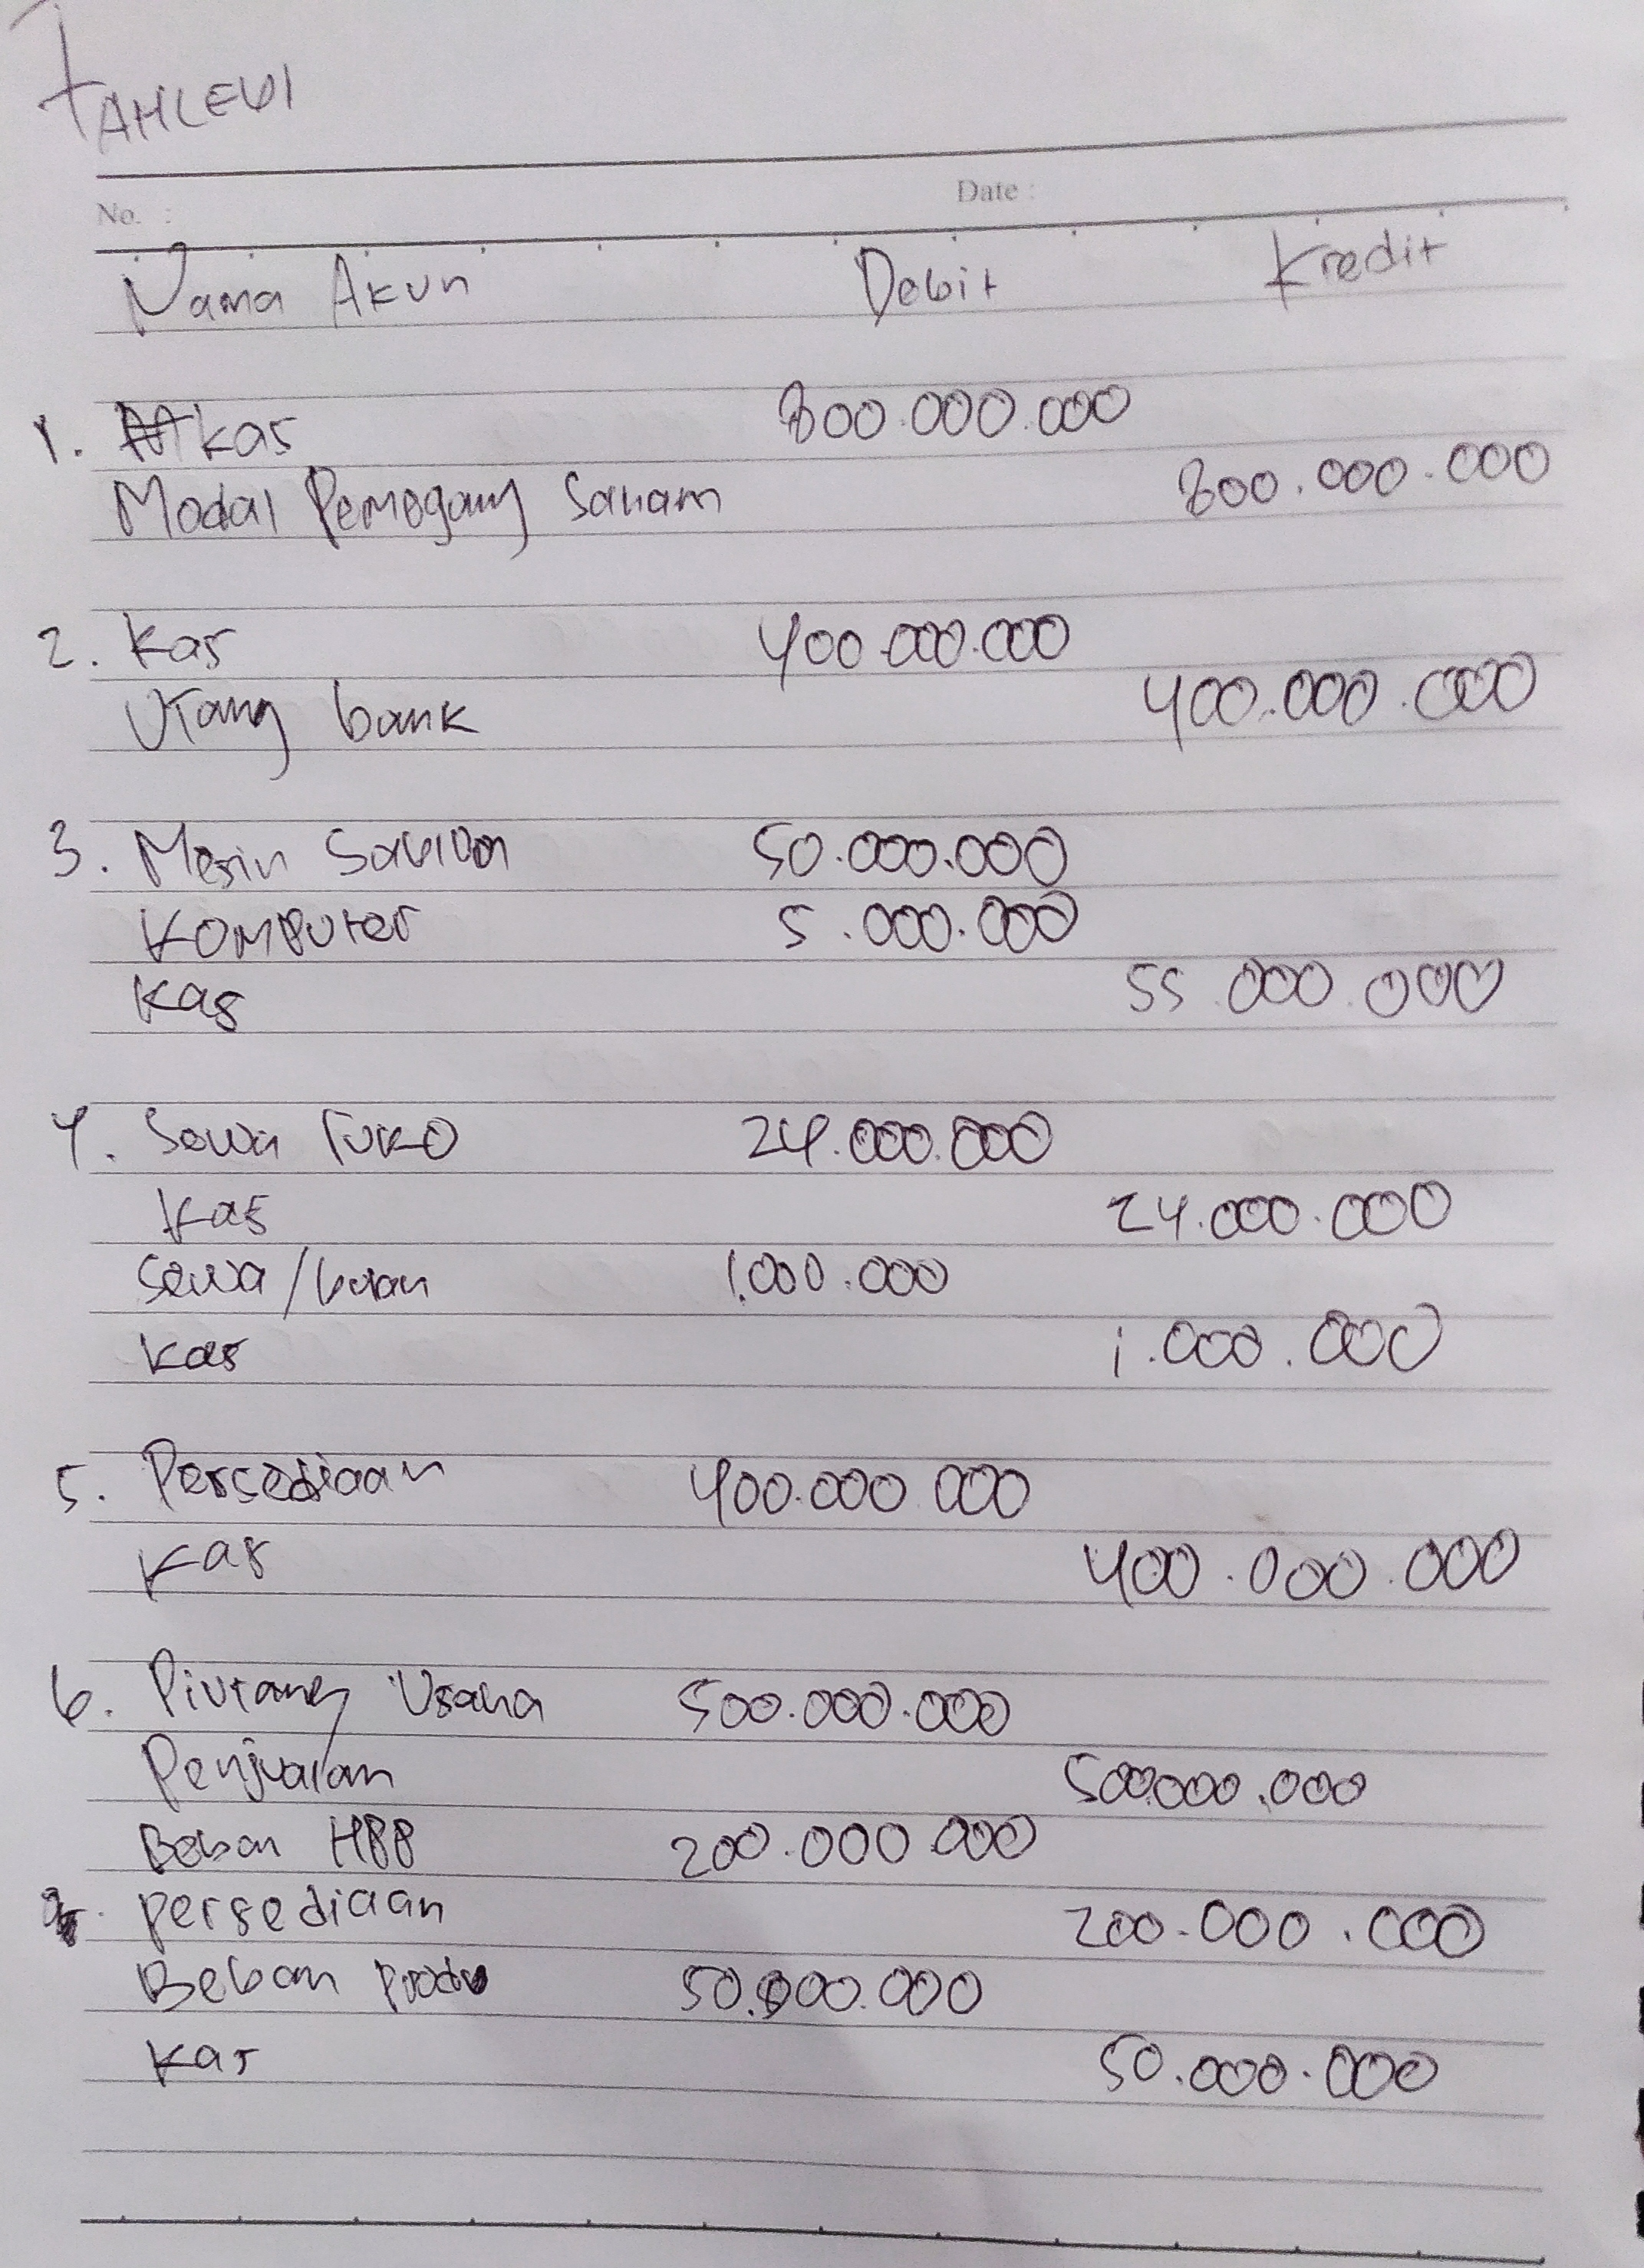 TAHLEVI
No. :
Date :
Nama Akun Debit Kredit
1. Kas 800.000.000
Modal Pemegang Saham 800.000.000
2. Kas 400.000.000
Utang bank 400.000.000
3. Mesin 50.000.000
Komputer 5.000.000
Kas 55.000.000
4. Sewa ruko 24.000.000
Kas 24.000.000
Sewa/bulan 1.000.000
Kas 1.000.000
5. Persediaan 400.000.000
Kas 400.000.000
6. Piutang Usaha 500.000.000
Penjualan 500.000.000
Beban HPP 200.000.000
Persediaan 200.000.000
Beban Produ 50.000.000
Kas 50.000.000